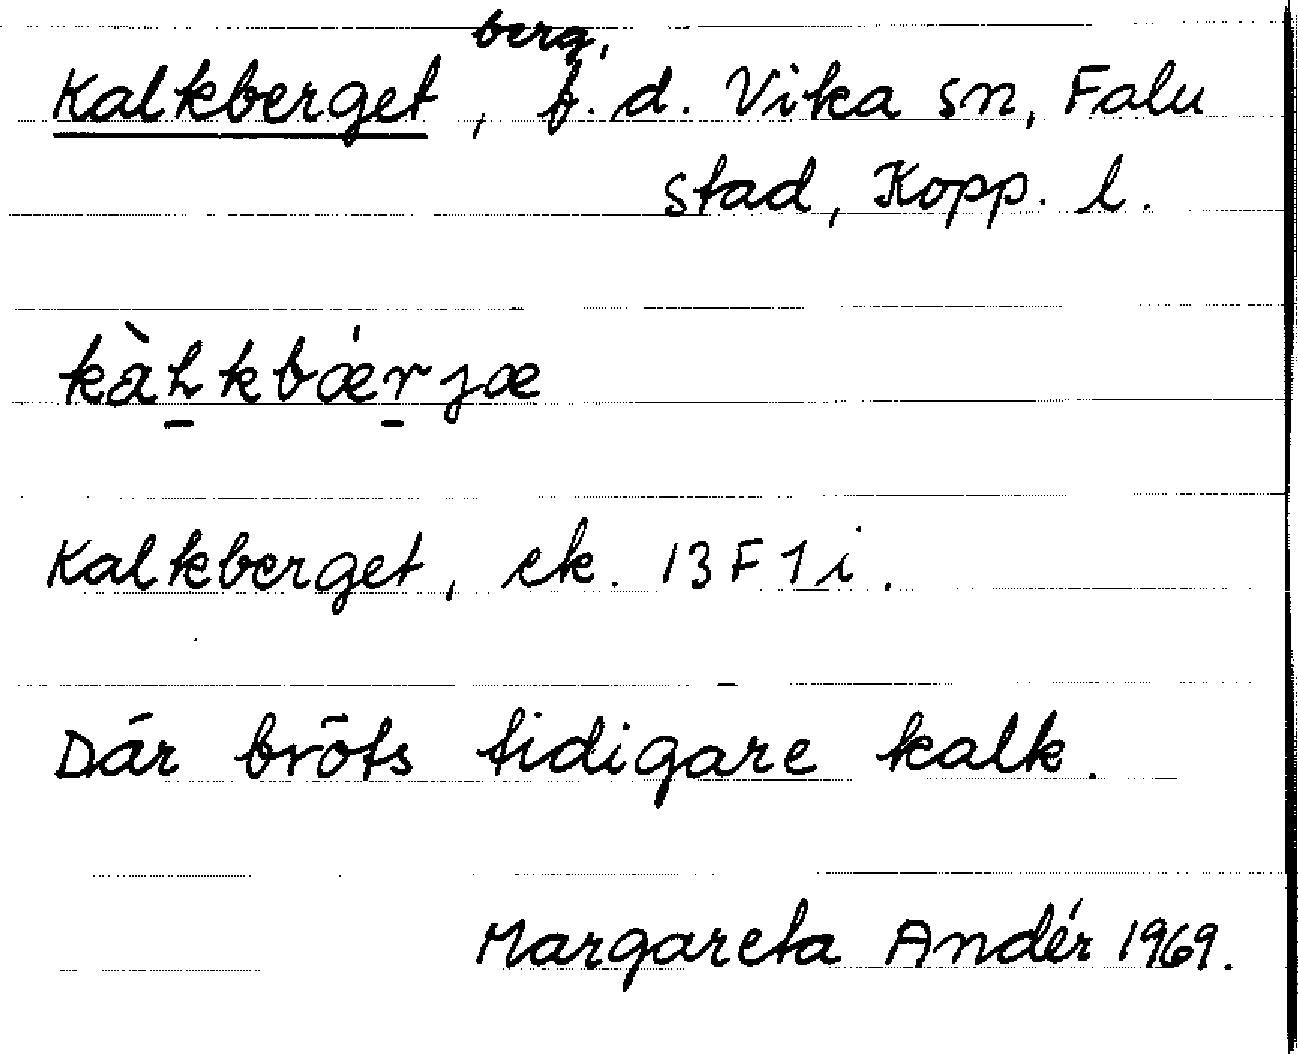 berg,
Kalkberget, f. d. Vika sn, Falu
stad, Kopp. l.
kàḻkbǽṟjæ
Kalkberget, ek. 13 F 1 i.
Där bröts tidigare kalk.
Margareta Andér 1969.